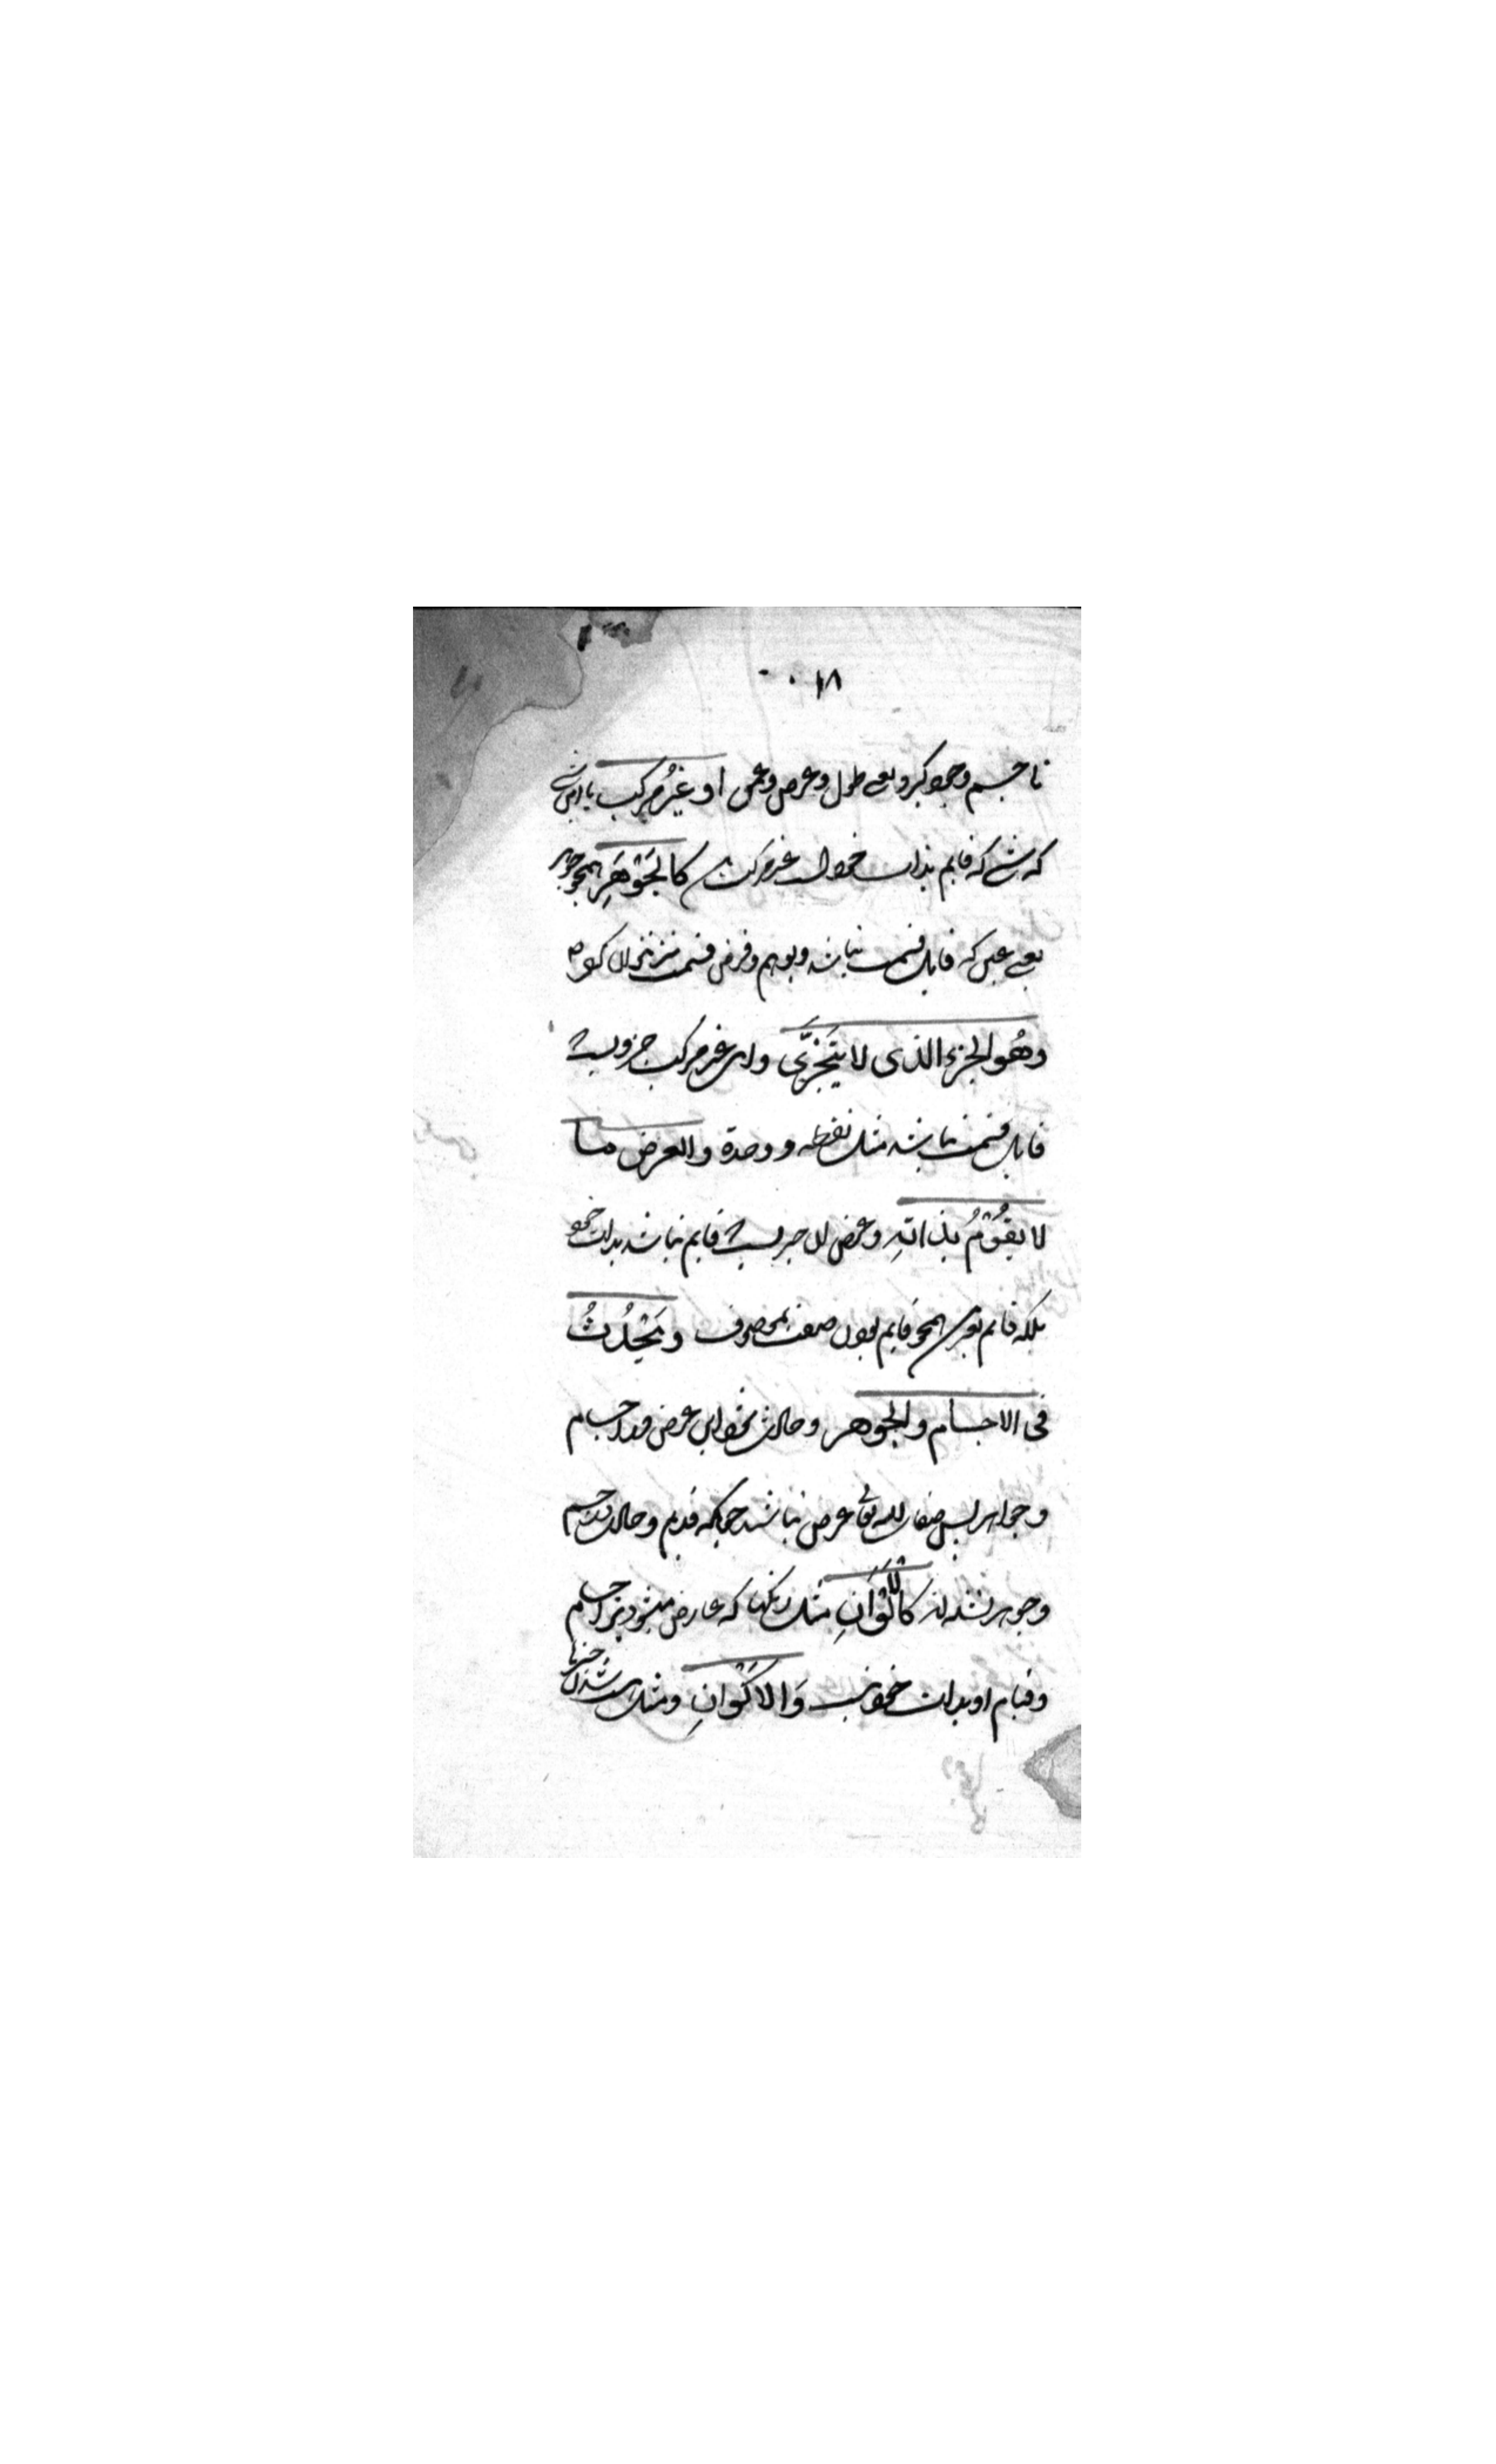 ١٨
تا جسم وجود گیرد یعنی طول و عرض و عمق او غَيْرُ مركب یا آن شی
که شی که قایم بذات خود است غیر مرکب کالجَوْهَرِ همچو جوهر
یعنی عینی که قابل قسمت نباشد و بوهم و فرض قسمت نیز نتوان کرد
وهُو الجزء الذى لا يَتَجَزَّى و این غیر مرکب جزویست
قابل قسمت نباشد مثل نقطه و وحدة والعرض ما
لا يقُوْمُ بذاتهِ و عرض آن چیزیست قایم نباشد بذات خود
بلکه قایم بغیری همچو قایم بودن صفت بموصوف ويَحْدُثُ
فى الاجسام والجوهر و حادث شود این عرض در اجسام
و جواهر پس صفات الله تعالی عرض نباشد چرا که قدیم و حادث در جسم
و جوهر نشده اند كالْاَلْوَانِ مثل رنگها که عارض میشود بر اجسام
و قیام او بذات خود نیست وَالاَكْوَانِ و مثل